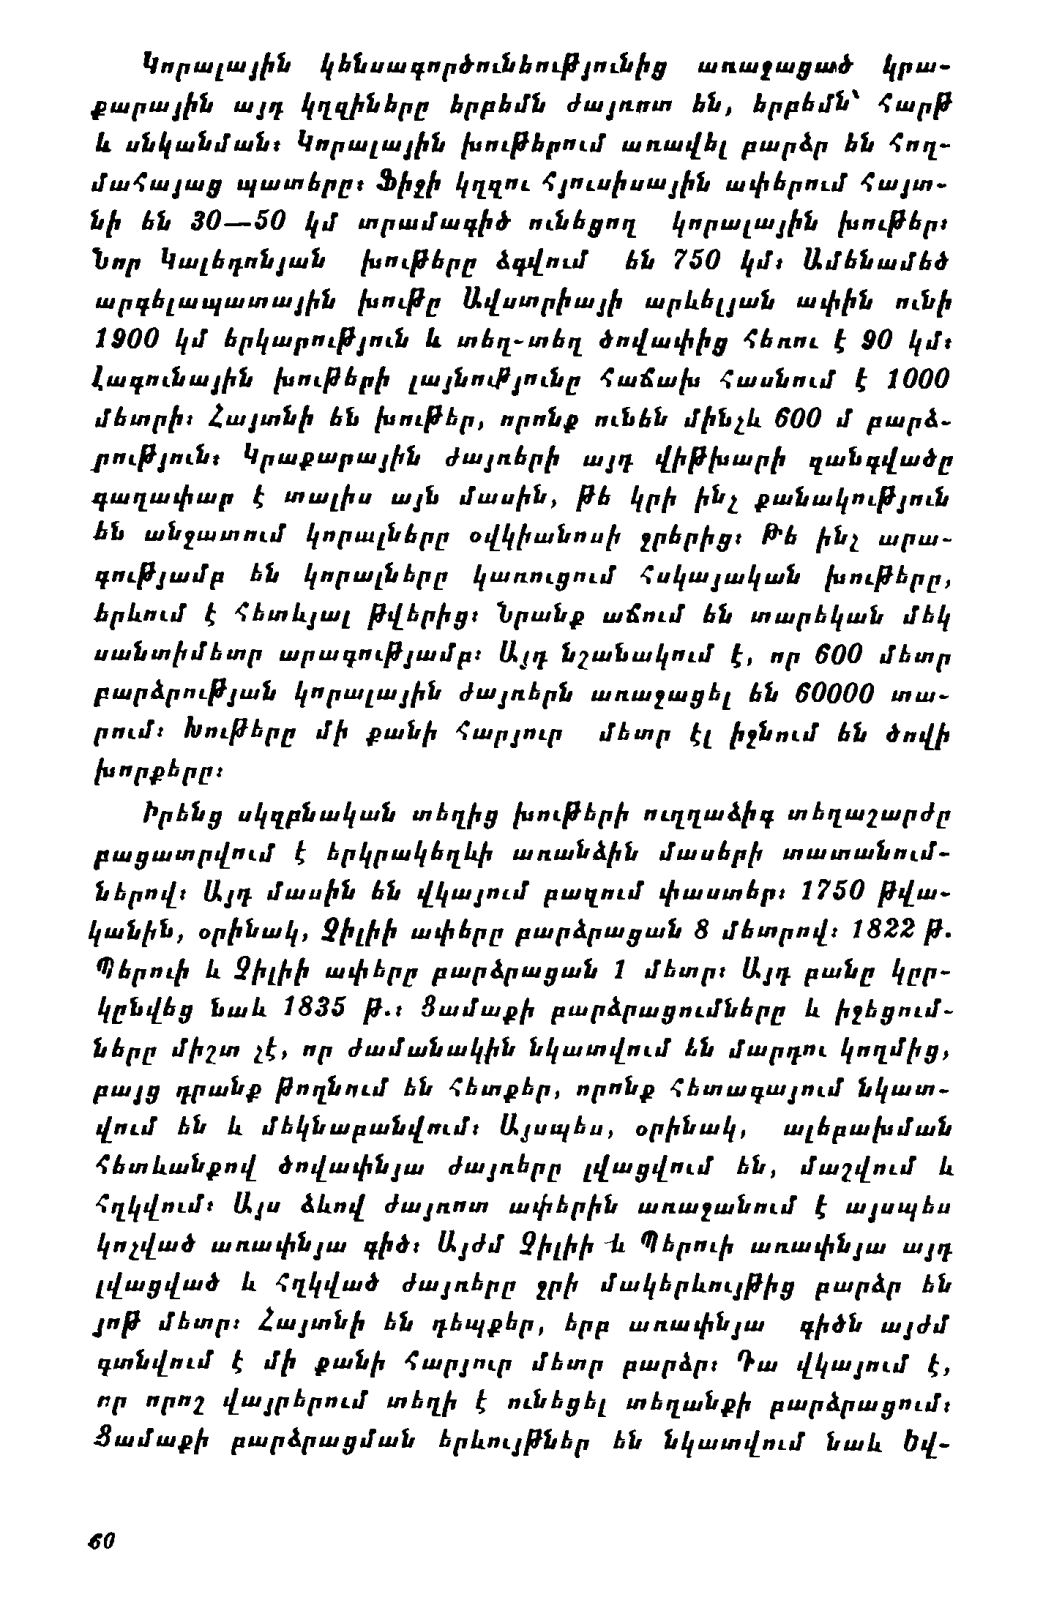 Կորալային կենսագործունեությունից առաջացած կրա-
քարային այդ կղզիները երբեմն ժայռոտ են, երբեմն՝ հարթ
և սնկանման։ Կորալային խութերում առավել բարձր են հող-
մահայաց պատերը։ Ֆիջի կղզու հյուսիսային ափերում հայտ-
նի են 30—50 կմ տրամագիծ ունեցող կորալային խութեր։
Նոր Կալեդոնյան խութերը ձգվում են 750 կմ։ Ամենամեծ
արգելապատային խութը Ավստրիայի արևելյան ափին ունի
1900 կմ երկարություն և տեղ-տեղ ծովափից հեռու է 90 կմ։
Լագունային խութերի լայնությունը հաճախ հասնում է 1000
մետրի։ Հայտնի են խութեր, որոնք ունեն մինչև 600 մ բարձ-
րություն։ Կրաքարային ժայռերի այդ վիթխարի զանգվածը
գաղափար է տալիս այն մասին, թե կրի ինչ քանակություն
են անջատում կորալները օվկիանոսի ջրերից։ Թե ինչ արա-
գությամբ են կորալները կառուցում հսկայական խութերը,
երևում է հետևյալ թվերից։ Նրանք աճում են տարեկան մեկ
սանտիմետր արագությամբ։ Այդ նշանակում է, որ 600 մետր
բարձրության կորալային ժայռերն առաջացել են 60000 տա-
րում։ Խութերը մի քանի հարյուր մետր էլ իջնում են ծովի
խորքերը։
Իրենց սկզբնական տեղից խութերի ուղղաձիգ տեղաշարժը
բացատրվում է երկրակեղևի առանձին մասերի տատանում-
ներով։ Այդ մասին են վկայում բազում փաստեր։ 1750 թվա-
կանին, օրինակ, Չիլիի ափերը բարձրացան 8 մետրով։ 1822 թ.
Պերուի և Չիլիի ափերը բարձրացան 1 մետր։ Այդ բանը կըր-
կընվեց նաև 1835 թ.։ Ցամաքի բարձրացումները և իջեցում-
ները միշտ չէ, որ ժամանակին նկատվում են մարդու կողմից,
բայց դրանք թողնում են հետքեր, որոնք հետագայում նկատ-
վում են և մեկնաբանվում։ Այսպես, օրինակ, ալեբախման
հետևանքով ծովափնյա ժայռերը լվացվում են, մաշվում և
հղկվում։ Այս ձևով ժայռոտ ափերին առաջանում է այսպես
կոչված առափնյա գիծ։ Այժմ Չիլիի և Պերուի առափնյա այդ
լվացված և հղկված ժայռերը ջրի մակերևույթից բարձր են
յոթ մետր։ Հայտնի են դեպքեր, երբ առափնյա գիծն այժմ
գտնվում է մի քանի հարյուր մետր բարձր։ Դա վկայում է,
որ որոշ վայրերում տեղի է ունեցել տեղանքի բարձրացում։
Ցամաքի բարձրացման երևույթներ են նկատվում նաև Եվ-
60